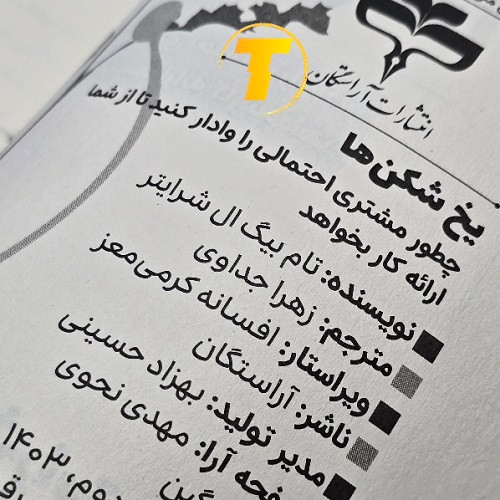 انتشارات آراستگان
یخ شکن‌ها
چطور مشتری احتمالی را وادار کنید تا از شما
ارائه کار بخواهد
نویسنده: تام بیگ ال شرایتر
مترجم: زهرا جداوی
ویراستار: افسانه کرمی‌معز
ناشر: آراستگان
مدیر تولید: بهزاد حسینی
صفحه آرا: مهدی نحوی
دوم، ۱۴۰۳
T